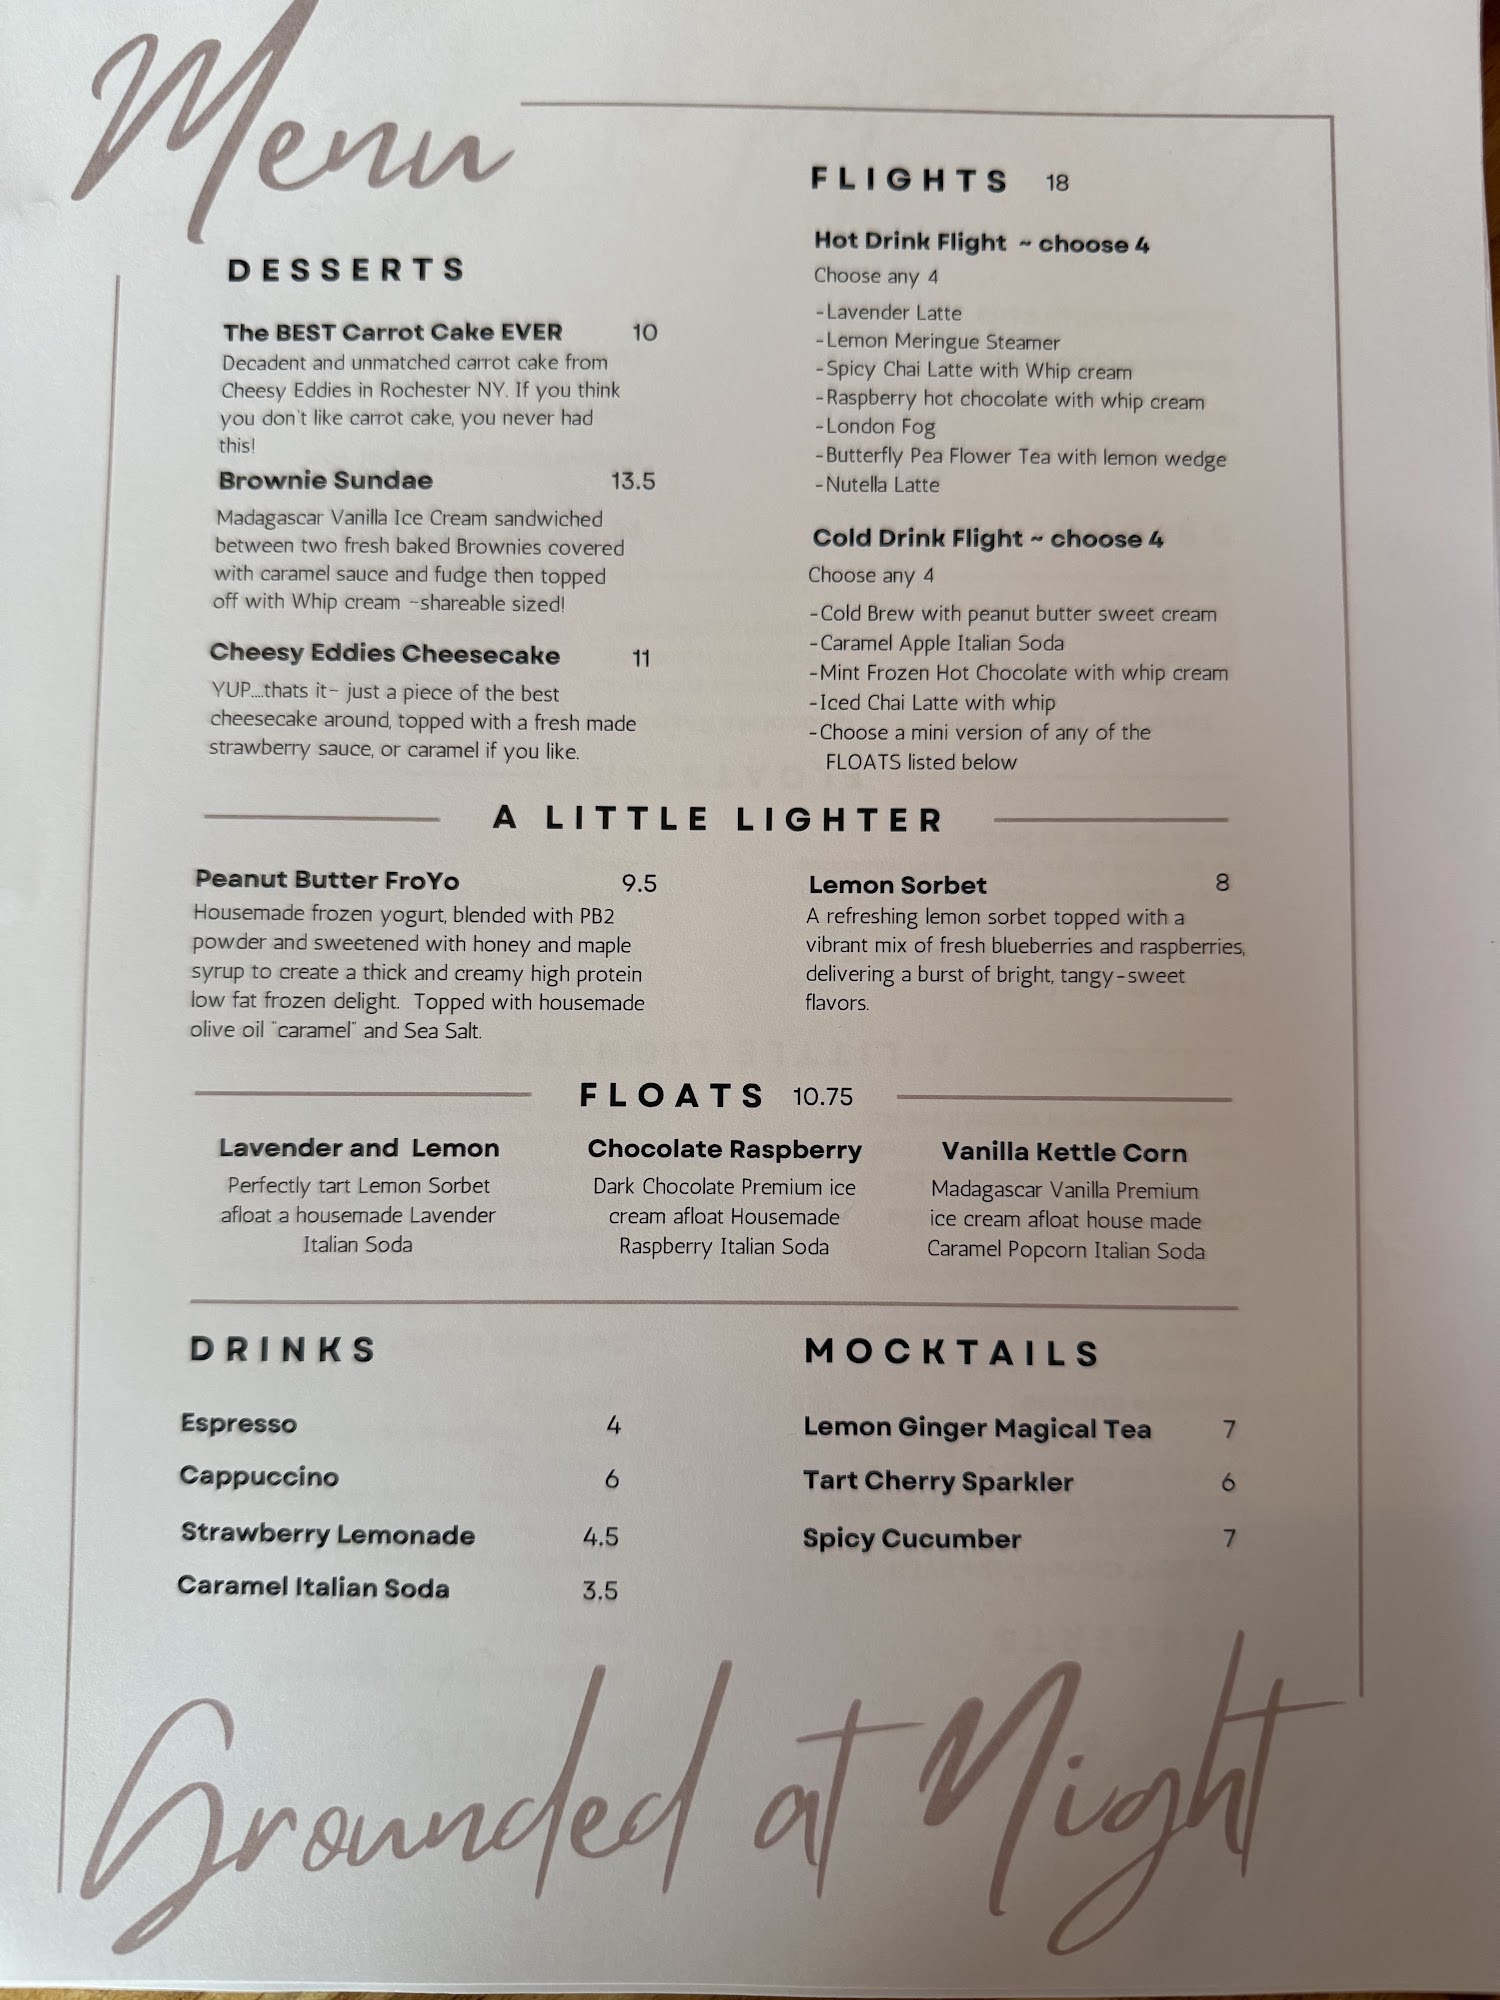 Menu
DESSERTS
The BEST Carrot Cake EVER 10
Decadent and unmatched carrot cake from
Cheesy Eddies in Rochester NY. If you think
you don't like carrot cake, you never had
this!
Brownie Sundae 13.5
Madagascar Vanilla Ice Cream sandwiched
between two fresh baked Brownies covered
with caramel sauce and fudge then topped
off with Whip cream -shareable sized!
Cheesy Eddies Cheesecake 11
YUP....thats it- just a piece of the best
cheesecake around, topped with a fresh made
strawberry sauce, or caramel if you like.
FLIGHTS 18
Hot Drink Flight ~ choose 4
Choose any 4
-Lavender Latte
-Lemon Meringue Steamer
-Spicy Chai Latte with Whip cream
-Raspberry hot chocolate with whip cream
-London Fog
-Butterfly Pea Flower Tea with lemon wedge
-Nutella Latte
Cold Drink Flight ~ choose 4
Choose any 4
-Cold Brew with peanut butter sweet cream
-Caramel Apple Italian Soda
-Mint Frozen Hot Chocolate with whip cream
-Iced Chai Latte with whip
-Choose a mini version of any of the
FLOATS listed below
A LITTLE LIGHTER
Peanut Butter FroYo 9.5
Housemade frozen yogurt, blended with PB2
powder and sweetened with honey and maple
syrup to create a thick and creamy high protein
low fat frozen delight. Topped with housemade
olive oil "caramel" and Sea Salt.
Lemon Sorbet 8
A refreshing lemon sorbet topped with a
vibrant mix of fresh blueberries and raspberries,
delivering a burst of bright, tangy-sweet
flavors.
FLOATS 10.75
Lavender and Lemon
Perfectly tart Lemon Sorbet
afloat a housemade Lavender
Italian Soda
Chocolate Raspberry
Dark Chocolate Premium ice
cream afloat Housemade
Raspberry Italian Soda
Vanilla Kettle Corn
Madagascar Vanilla Premium
ice cream afloat house made
Caramel Popcorn Italian Soda
DRINKS
Espresso 4
Cappuccino 6
Strawberry Lemonade 4.5
Caramel Italian Soda 3.5
MOCKTAILS
Lemon Ginger Magical Tea 7
Tart Cherry Sparkler 6
Spicy Cucumber 7
Grounded at Night